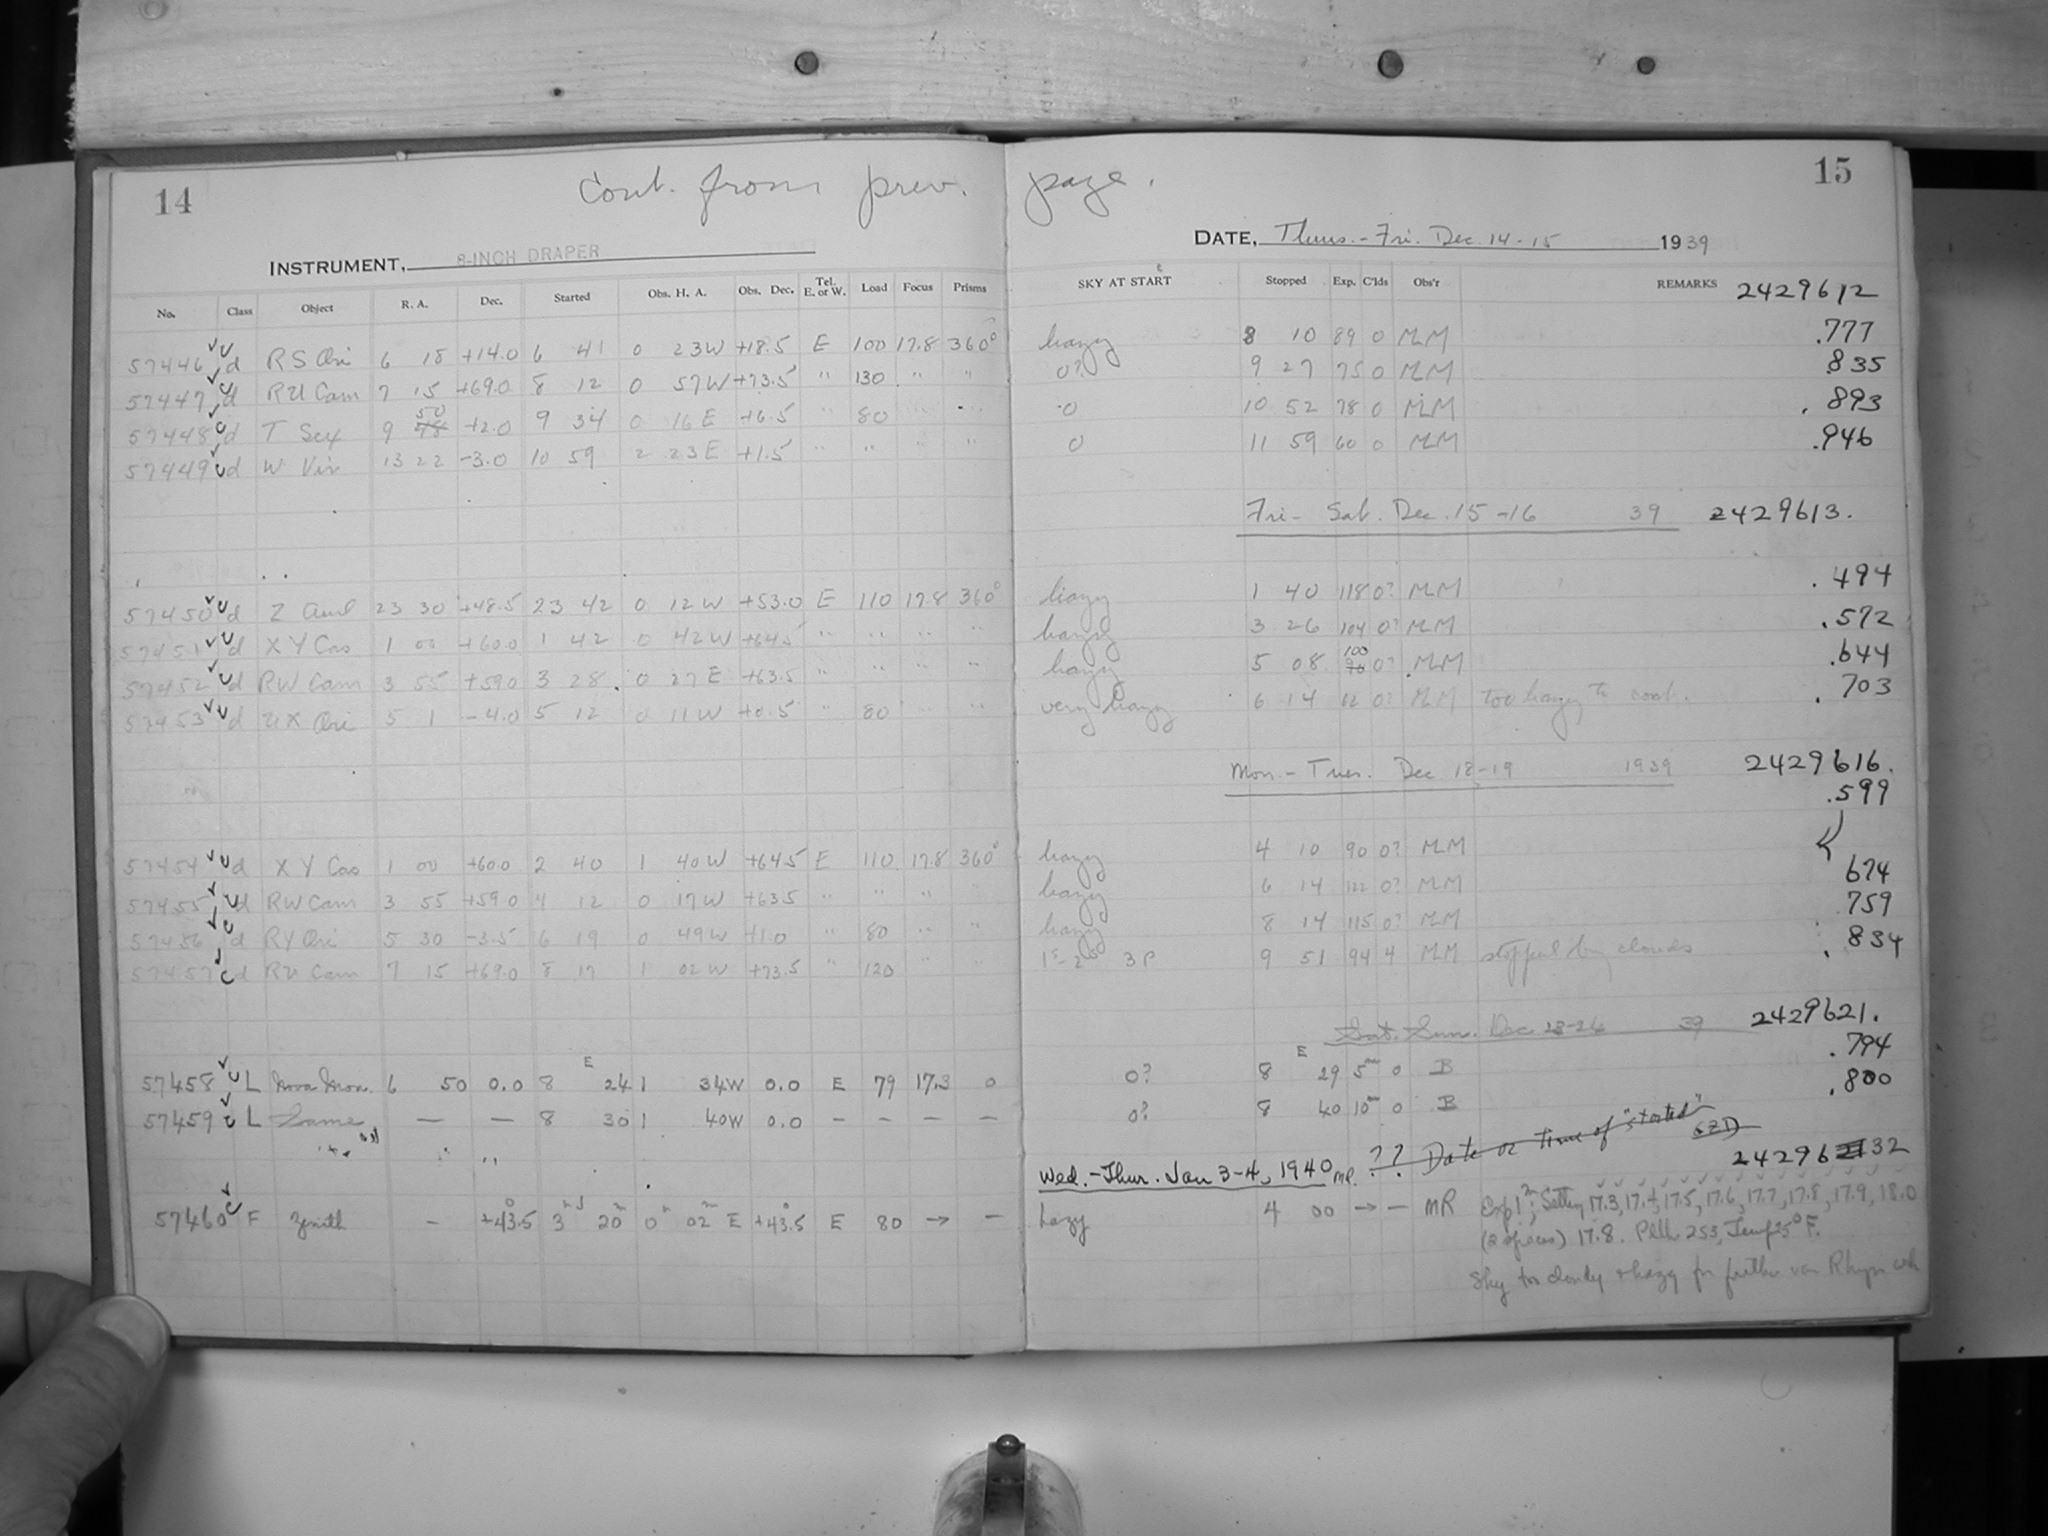 14
Cont. from prev. page.
15
INSTRUMENT, 8-INCH DRAPER
DATE, Thurs.-Fri. Dec. 14-15 1939
No. Class Object R. A. Dec. Started Obs. H. A. Obs. Dec. Tel. E. or W. Load Focus Prisms SKY AT START Stopped Exp. C'lds Obs'r REMARKS 2429612
57446 d RS Ori 6 18 +14.0 6 41 0 23W +18.5 E 100 17.8 360° hazy 8 10 89 0 MM .777
57447 d RU Cam 7 15 +69.0 8 12 0 57W +73.5 " 130 " " 0? 9 27 75 0 MM 835
57448 d T Sex 9 50 +2.0 9 34 0 16E +6.5 " 80 " " 0 10 52 78 0 MM .893
57449 d W Vir 13 22 -3.0 10 59 2 23E +1.5 " " " " 0 11 59 60 0 MM .946
Fri-Sat. Dec. 15-16 39 2429613.
57450 d Z And 23 30 +48.5 23 42 0 12W +53.0 E 110 17.8 360° hazy 1 40 118 0? MM .494
57451 d XY Cas 1 00 +60.0 1 42 0 42W +64.5 " " " " hazy 3 26 104 0? MM .572
57452 d RW Cam 3 55 +59.0 3 28 0 27E +63.5 " " " " hazy 5 08 100 0? MM .644
57453 d UX Ori 5 1 -4.0 5 12 0 11W +0.5 " 80 " very hazy 6 14 62 0? MM too hazy to cont. .703
Mon.-Tues. Dec 18-19 1939 2429616.
.599
57454 d XY Cas 1 00 +60.0 2 40 1 40W +64.5 E 110 17.8 360° hazy 4 10 90 0? MM
57455 d RW Cam 3 55 +59.0 4 12 0 17W +63.5 " " " " hazy 6 14 122 0? MM 674
57456 d RY Ori 5 30 -3.5 6 19 0 49W +1.0 " 80 " " hazy 8 14 115 0? MM 759
57457 d RU Cam 7 15 +69.0 8 17 1 02W +73.5 " 120 3P 9 51 94 4 MM stopped by clouds .834
Sat. Sun. Dec 39 2429621.
57458 L Nova Mon. 6 50 0.0 8 E 24 1 34W 0.0 E 79 17.3 0 0? 8 E 29 5m 0 B .794
57459 L Same — — 8 30 1 40W 0.0 - - - - 0? 8 40 10m 0 B .800
?? Date or time of "started"
Wed.-Thur. Jan 3-4, 1940 MR. 2429632
57460 F Zenith - +43.5 3h 20m 0h 02m E +43.5 E 80 → - hazy 4 00 → - MR Exp 1m; Setting 17.3, 17.4, 17.5, 17.6, 17.7, 17.8, 17.9, 18.0
(2 spaces) 17.8. 253, Temp 25° F.
Sky too cloudy & hazy for further